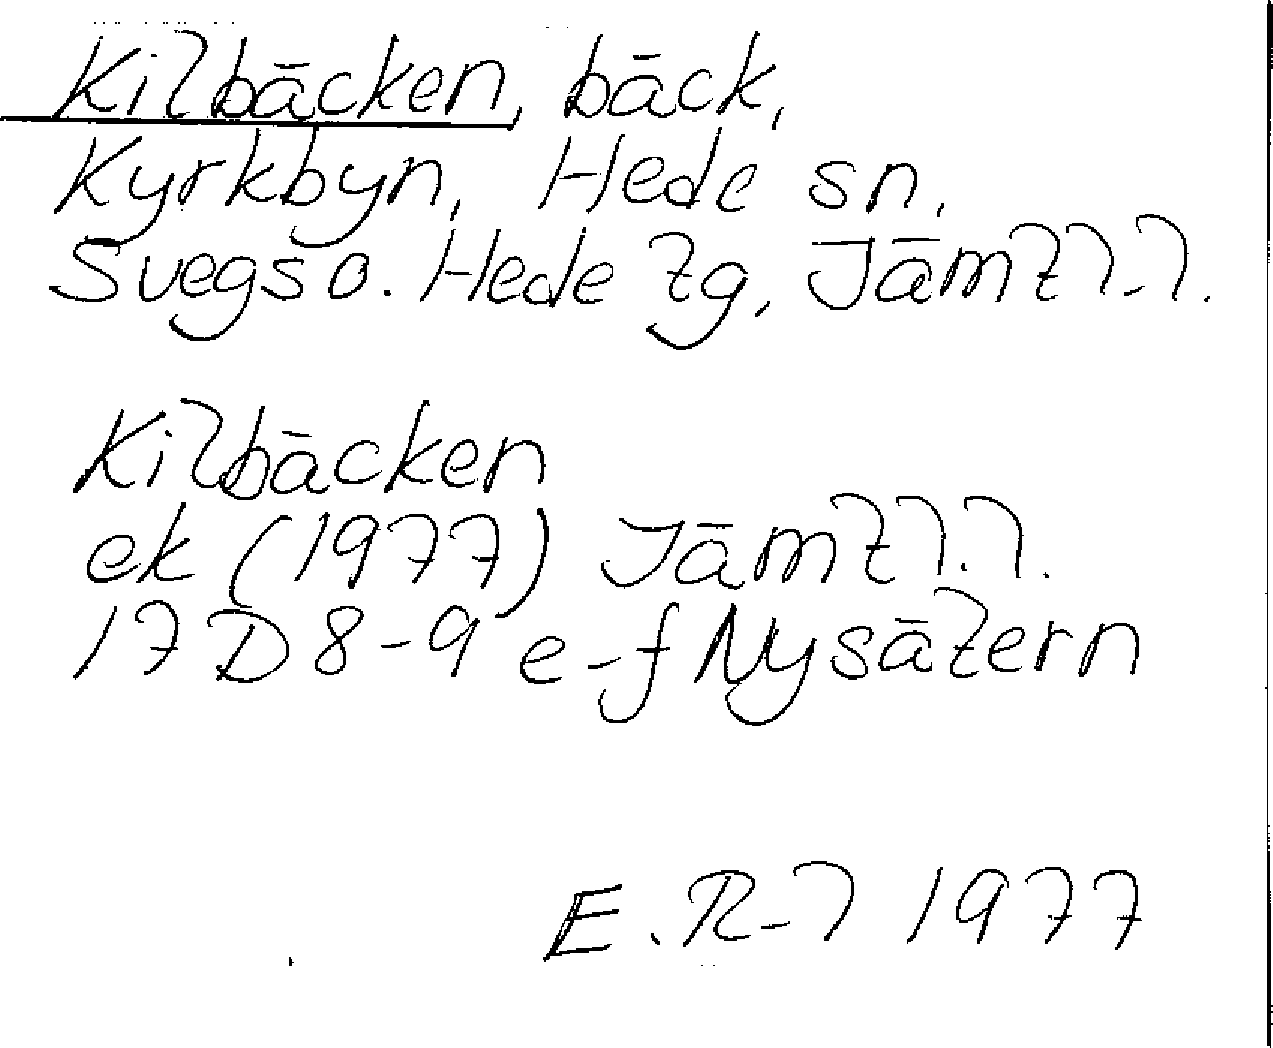 Kilbäcken, bäck,
Kyrkbyn, Hede sn,
Svegs o. Hede tg, Jämtl.l.
Kilbäcken
ek (1977) Jämtl.l.
17D 8-9 e-f Nysätern
E. R-l 1977